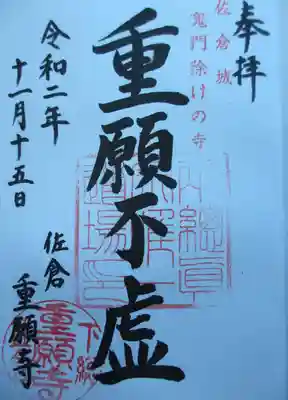 奉拝
佐倉城
鬼門除けの寺
重願不虚
令和二年
十一月十五日
佐倉
重願寺
下総
重願寺